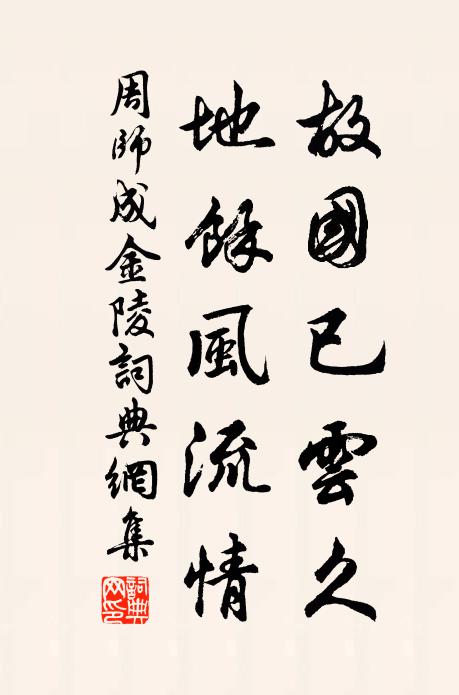 故國已雲久
地餘風流情
周師成金陵詞典網集
詞典网印